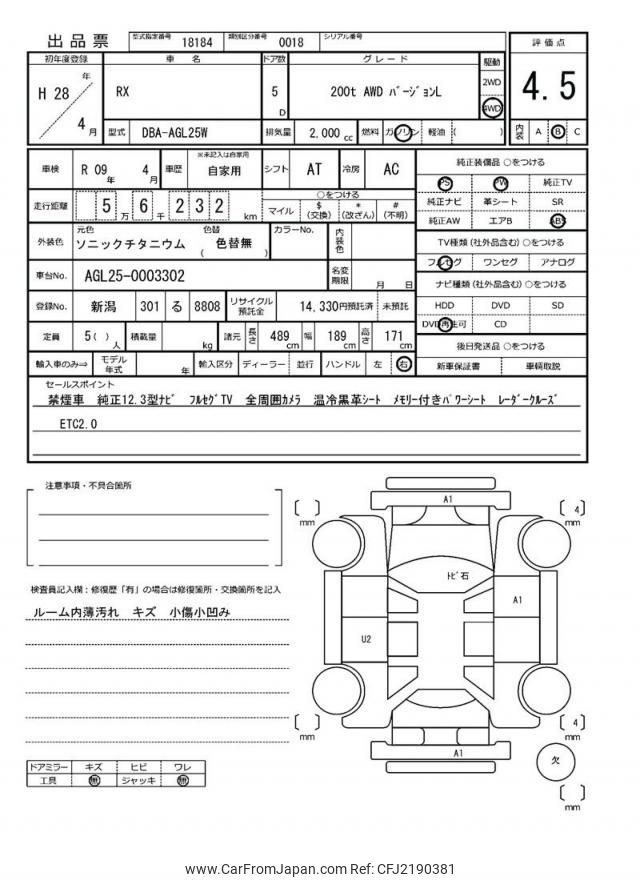 出品票 型式指定番号 18184 類別区分番号 0018 シリアル番号
初年度登録 車名 ドア数 グレード 駆動 評価点
H 28 年 4 月 RX 5 D 200t AWD バージョンL 2WD 4WD 4.5
型式 DBA-AGL25W 排気量 2,000 cc 燃料 ガソリン 軽油 ( ) 内装 A B C
車検 R 09 年 4 月 車歴 ※未記入は自家用 自家用 シフト AT 冷房 AC
走行距離 5 万 6 千 2 3 2 km ○をつける マイル $ (交換) * (改ざん) # (不明)
外装色 元色 ソニックチタニウム 色替 ( 色替無 ) カラーNo. 内装色
車台No. AGL25-0003302 名変期限 月 日
登録No. 新潟 301 る 8808 リサイクル預託金 14,330円預託済 未預託
定員 5( ) 人 積載量 kg 諸元 長さ 489 cm 幅 189 cm 高さ 171 cm
輸入車のみ⇒ モデル年式 年 輸入区分 ディーラー 並行 ハンドル 左 右
純正装備品 ○をつける
PS PW 純正TV
純正ナビ 革シート SR
純正AW エアB ABS
TV種類(社外品含む)○をつける
フルセグ ワンセグ アナログ
ナビ種類(社外品含む)○をつける
HDD DVD SD
DVD再生可 CD
後日発送品 ○をつける
新車保証書 車輌取説
セールスポイント
禁煙車 純正12.3型ナビ フルセグTV 全周囲カメラ 温冷黒革シート メモリー付きパワーシート レーダークルーズ
ETC2.0
注意事項・不具合箇所
検査員記入欄：修復歴「有」の場合は修復箇所・交換箇所を記入
ルーム内薄汚れ キズ 小傷小凹み
ドアミラー キズ ヒビ ワレ
工具 無 ジャッキ 無
A1
[ ] mm
[ 4 ] mm
トビ石
A1
U2
[ ] mm
[ 4 ] mm
A1
欠
[ ] mm
www.CarFromJapan.com Ref: CFJ2190381